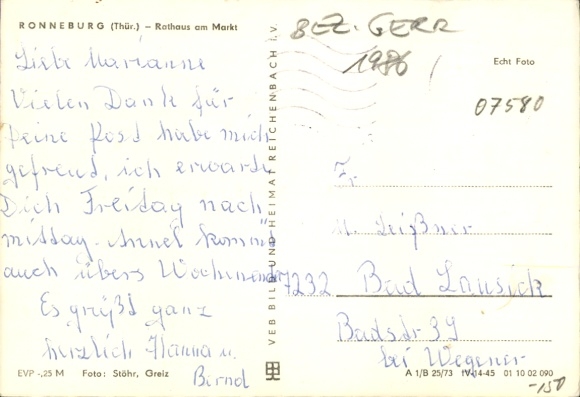 RONNEBURG (Thür.) – Rathaus am Markt
BEZ. GERA
1986
Echt Foto
07580
Liebe Marianne
Vielen Dank für
Deine Post habe mich
gefreut, ich erwarte
Dich Freitag nach
mittag. Annel kommt
auch übers Wochenende
Es grüßt ganz
herzlich Hanna u.
Bernd
VEB BILD UND HEIMAT REICHENBACH i. V.
Fr.
M. Leißner
7232 Bad Lausick
Badstr 39
bei Wegener
EVP -,25 M Foto: Stöhr, Greiz
A 1/B 25/73 IV-14-45 01 10 02 090
-150